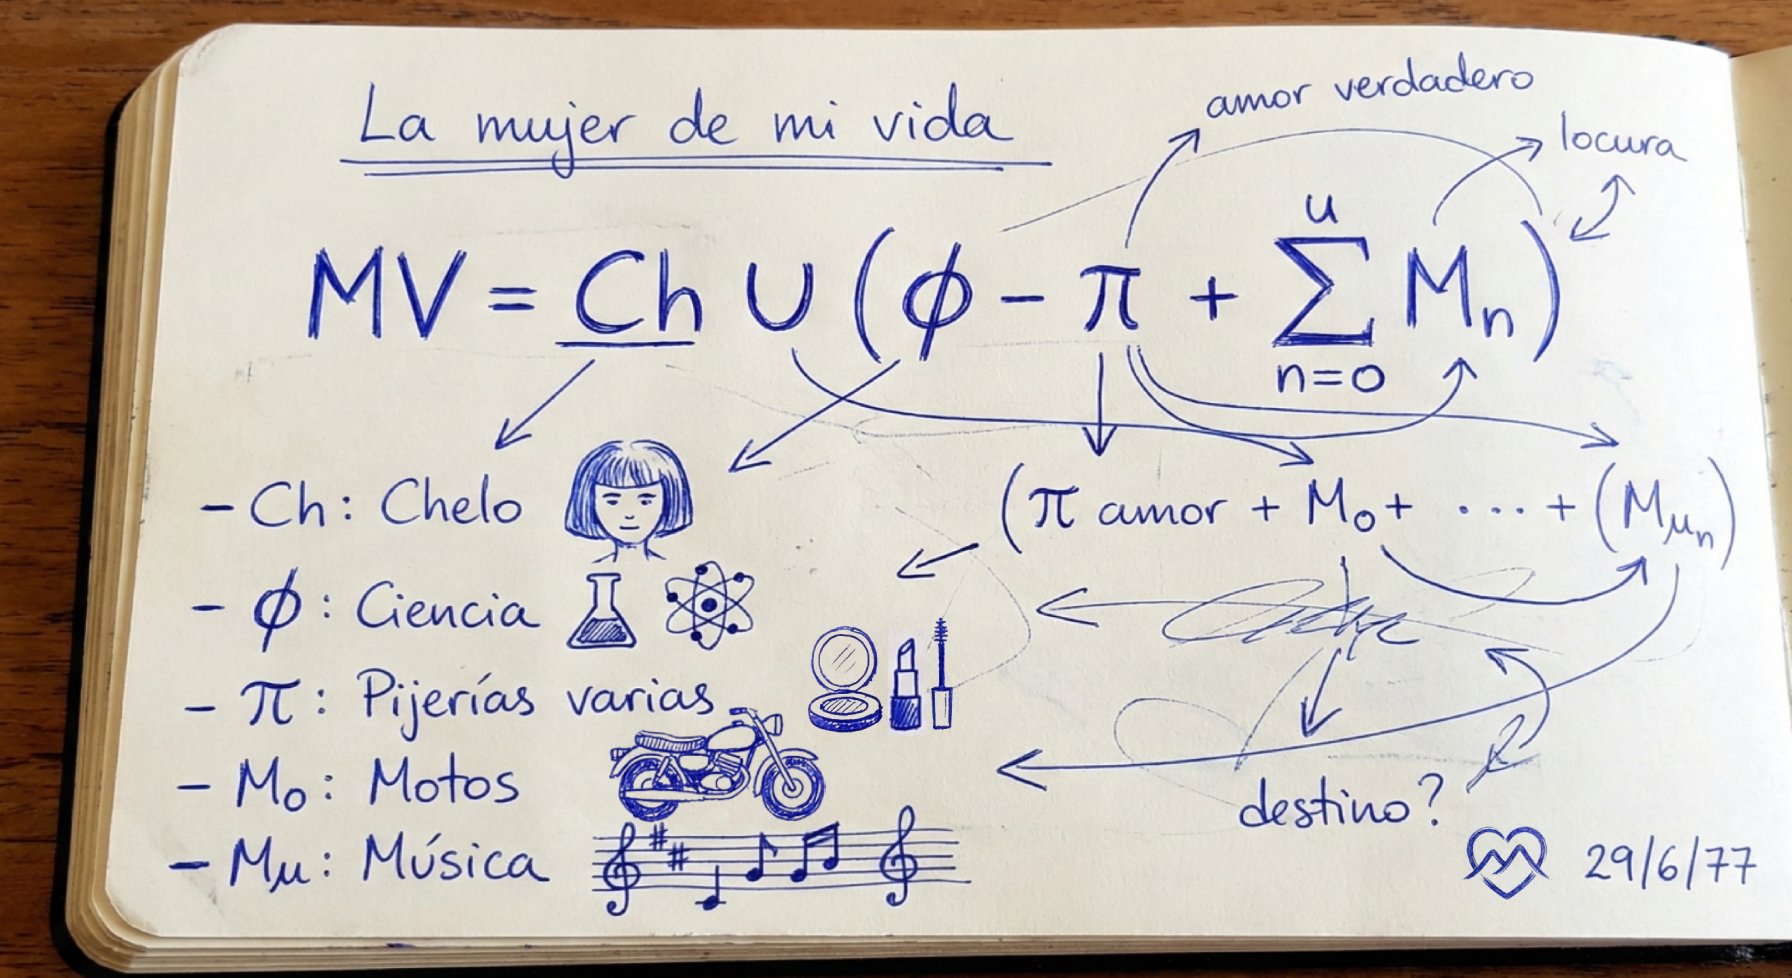 La mujer de mi vida
amor verdadero
locura
MV = Ch U (ϕ - π + ∑ Mn)
u
n=0
(π amor + Mo + ... + (Mμn)
- Ch: Chelo
- ϕ: Ciencia
- π: Pijerías varias
- Mo: Motos
- Mμ: Música
destino?
29/6/77